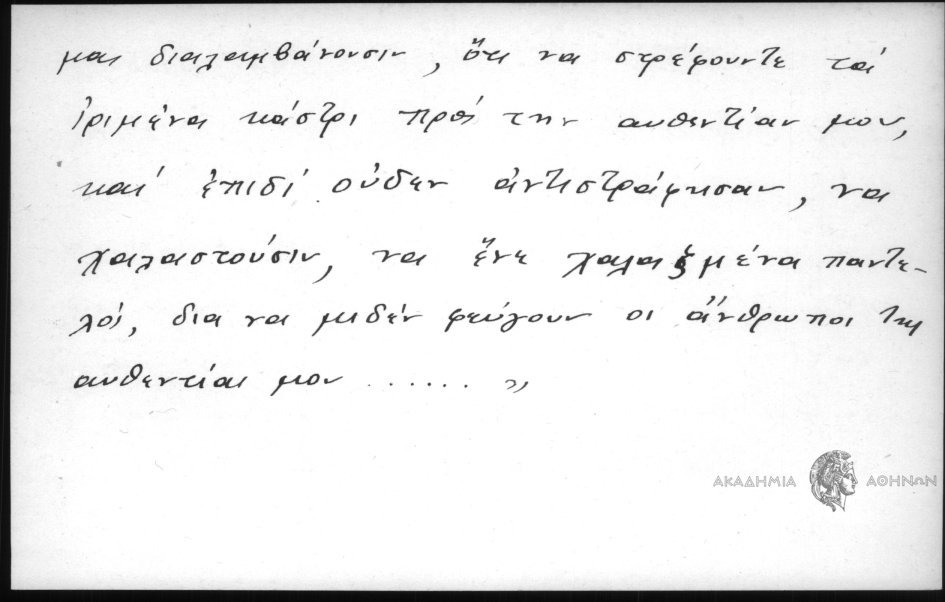 μας διαλαμβάνουσιν, ὅτι να στρέφουντε τα
ἰριμένα κάστρι πρός την αυθεντίαν μου,
και ἐπιδί οὐδεν ἀντιστράφησαν, να
χαλαστούσιν, να ἔνε χαλασμένα παντε-
λός, δια να μιδέν φεύγουν οι άνθρωποι της
αυθεντίας μου ...... »
ΑΚΑΔΗΜΙΑ ΑΘΗΝΩΝ